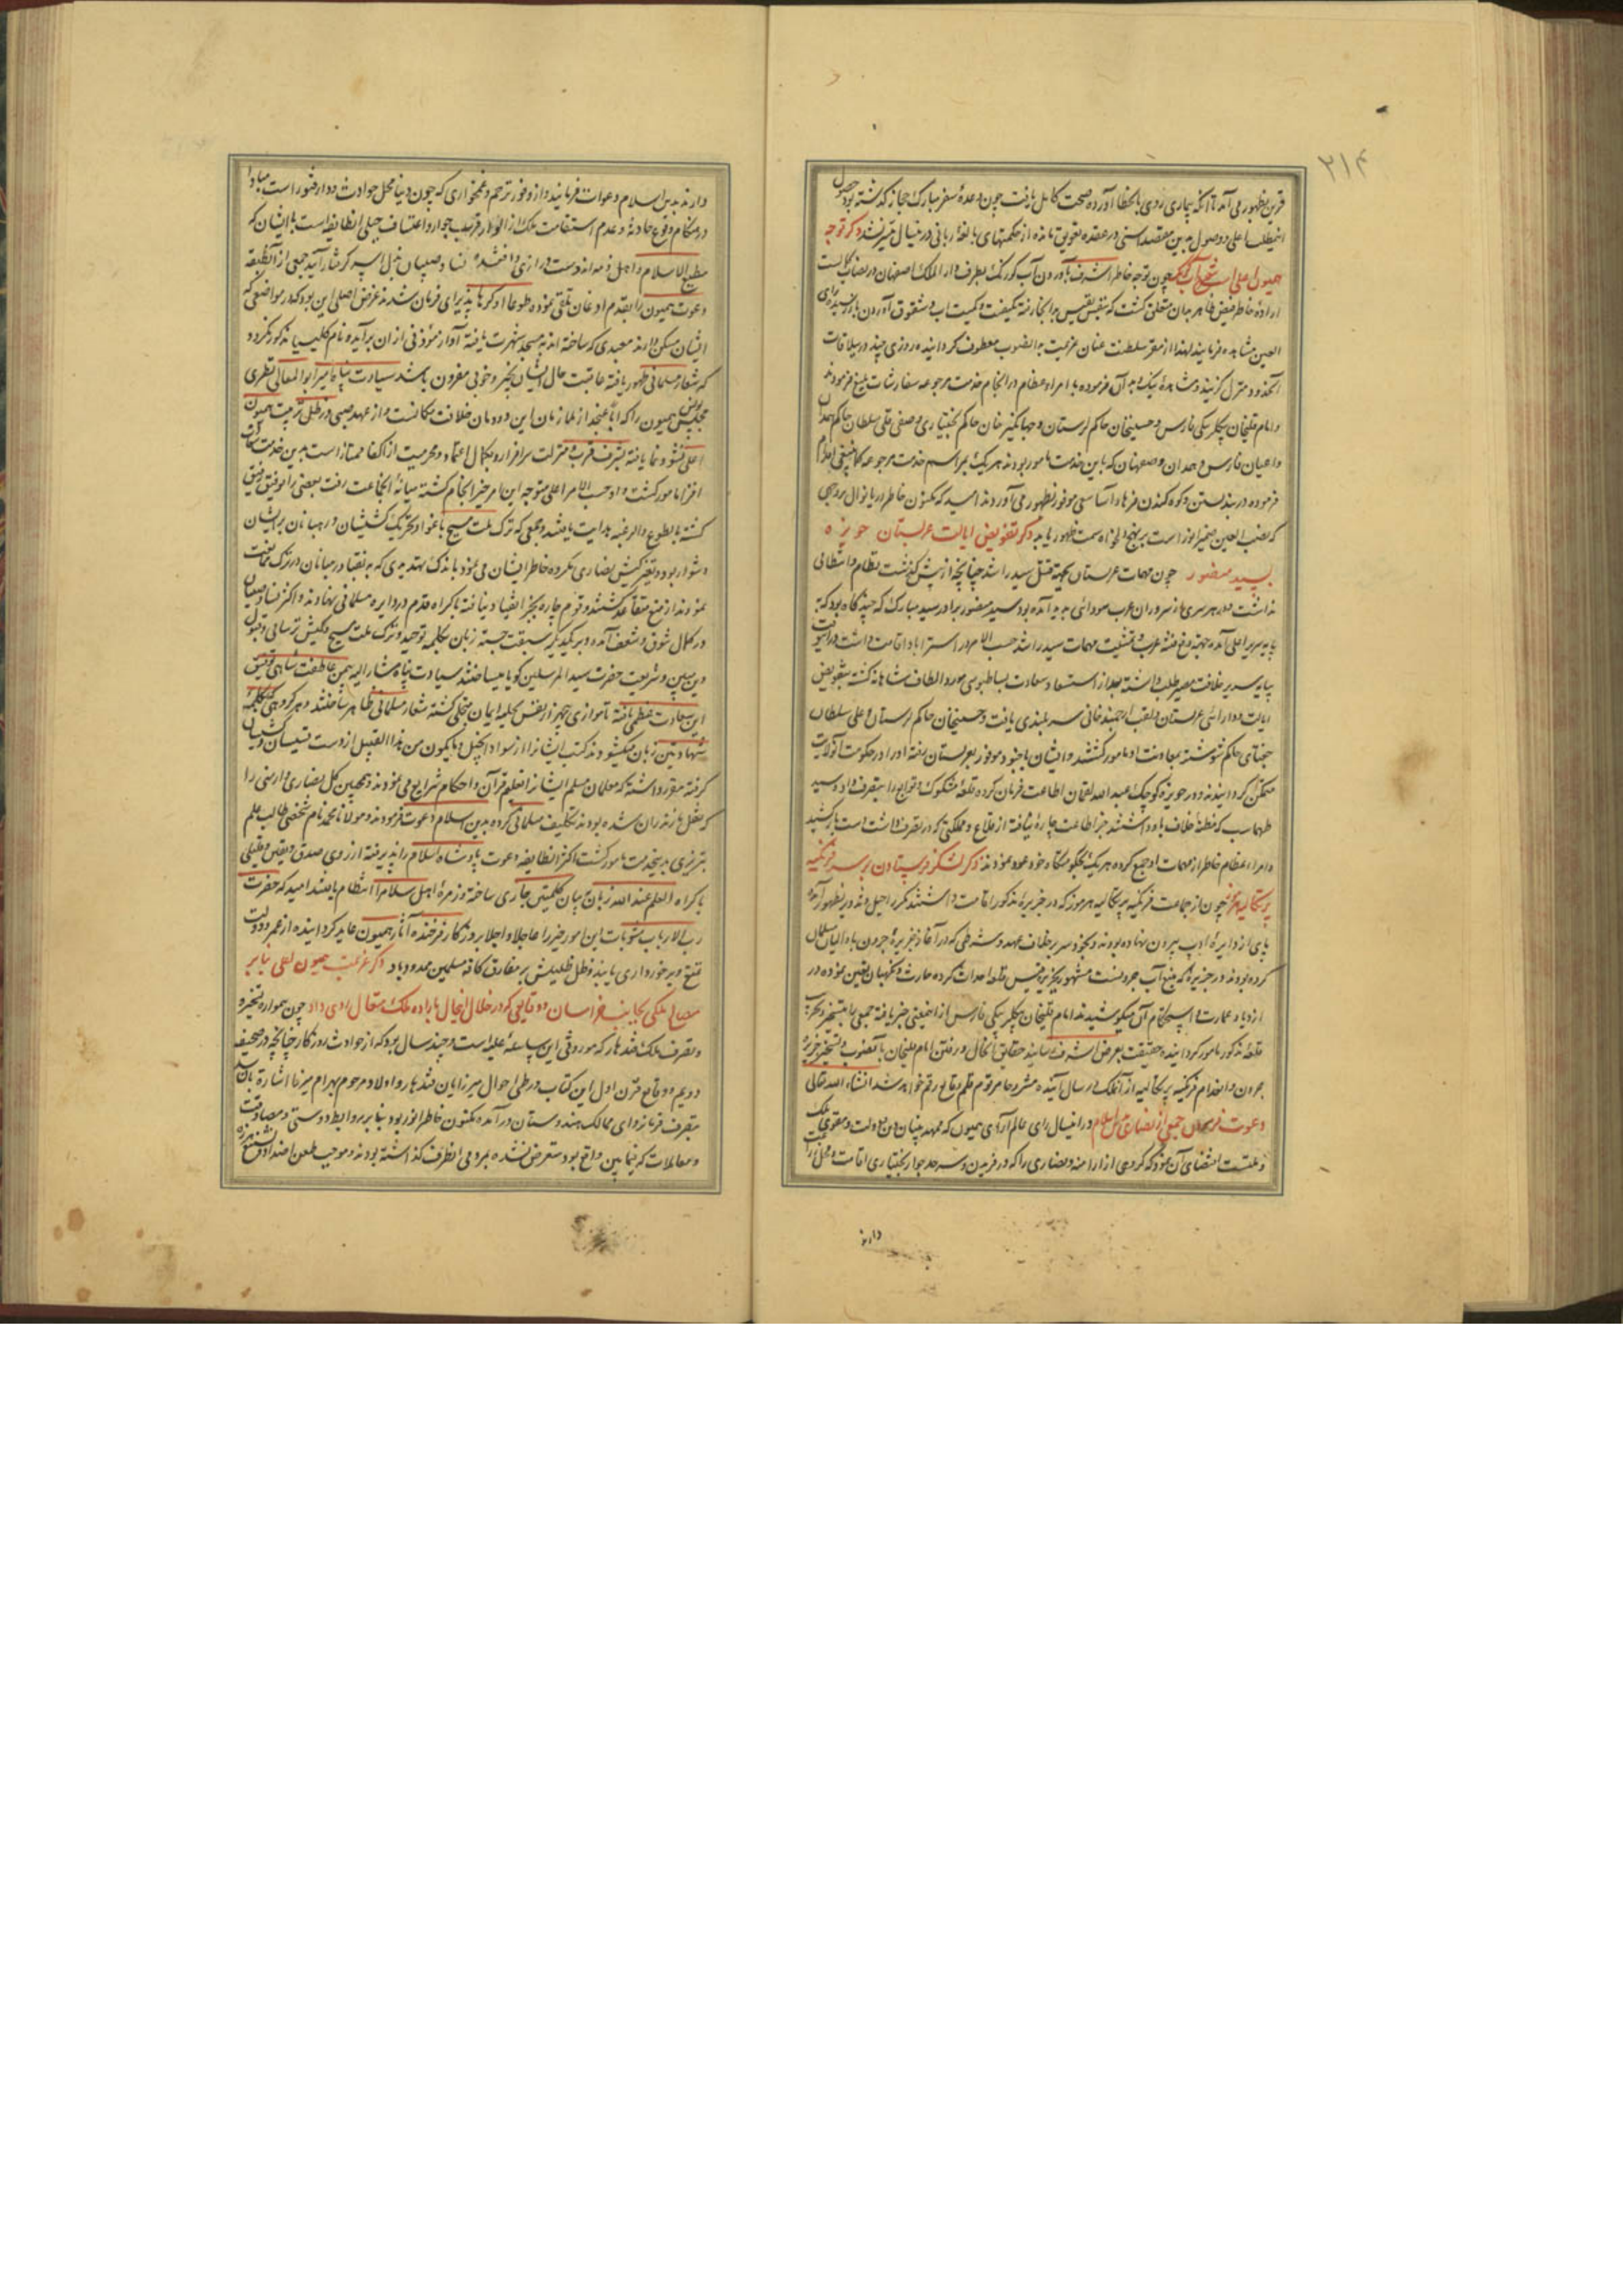 ۲۱۴
قرین ظهور می آمد تا آنکه بیماری روی بانحطاط آورده صحت کامل یافت چون وعدهٔ سفر مبارک حجاز گذشته بود حصول
این مطلب اعلی و وصول بدین مقصد اسنی در عقده تعویق مانده از حکمتهای بالغه ربانی در آن سال میسر نشد ذکر توجه
همیون اعلی چون توجه خاطر اشرف بآوردن آب کورنک بطرف دار الملک اصفهان در نصاب کمالست
اراده خاطر فیض مظاهر بدان متعلق گشت که بنفس نفیس بدانجا رفته کیفیت و کمیت آب و شقوق آوردن بارور رسیده رای
العین مشاهده فرمایند لهذا از مقر سلطنت عنان عزیمت بدانصوب معطوف گردانیده روزی چند در ییلاقات
آنحدود منزل گزیند و مشاهدهٔ نیک و بد آن فرموده با امراء عظام در انجام خدمت مرجوعه سفارشات بلیغ فرمودند
و امام قلیخان بیکلربیکی فارس و حسینخان حاکم لرستان و جهانگیر خان حاکم بختیاری و صفی قلی سلطان حاکم همدان
و اعیان فارس و همدان و صفهان که باین خدمت مامور بودند هر یک بمراسم خدمت مرجوعه کما ینبغی اقدام
فرموده در بند بستن و کوه کندن فرهاد آسا سعی موفور بظهور می آوردند امید که مکنون خاطر دریا نوال بروجهی
که نصب العین ضمیر انور است بر نهج دلخواه سمت ظهور یابد ذکر تفویض ایالت عربستان حویزه
بسید منصور چون مهمات عربستان بجهة قتل سید راشد چنانچه از پیش گذشت نظام و انتظامی
نداشت و در هر سری از سروران عرب سودائی پدید آمده بود سید منصور برادر سید مبارک که چند گاه بود که به
پایه سریر اعلی آمده بجهة رفع فتنهٔ عرب و تمشیت مهمات سید راشد حسب الامر در استراباد اقامت داشت در اینوقت
بپایه سریر خلافت مصیر طلب داشته بعد از استسعاد سعادت بساط بوسی مورد الطاف شاهانه گشته بتفویض
ایالت و دارائی عربستان و لقب ارجمند خانی سربلندی یافت و حسینخان حاکم لرستان و علی سلطان
چغتای حاکم شوشتر بمعاونت او مامور گشتند و ایشان با جنود موفور بعربستان رفته او را در حکومت آنولایت
متمکن گردانیدند و در حویزه کوچک عبدالله لقمان اطاعت فرمان کرده قلعهٔ مشکوک و توابع را بتصرف داد و سید
طهماسب که مظنهٔ خلاف باو داشتند جز اطاعت چارهٔ نیافته از قلاع و مملکتی که در تصرف داشت دست باز کشید
و امراء عظام خاطر از مهمات او جمع کرده هر یک بحکومتگاه خود عود نمودند ذکر لشکر فرستادن بر سر فرنگیه
پرتکالیه هرموز چون از جماعت فرنگیه پرتکالیه هرموز که در جزیرهٔ مذکور اقامت داشتند مکرر راحیل و غدر بظهور آمده
پای از دایرهٔ ادب بیرون نهاده بودند و بخود سر بر خلاف عهد و شرطی که در آغاز بجزیرهٔ جرون با والیان مسلمان
کرده بودند در جزیره که منبع آب جرونست مشهور بجزیره قشم قلعه احداث کرده حارث و نگهبان تعین نموده در
ازدیاد عمارت و استحکام آن میکوشیدند امام قلیخان بیکلربیکی فارس از اینمعنی خبر یافته جمعی را بتسخیر و تخریب
قلعهٔ مذکور مامور گردانیده حقیقت بعرض اشرف رسانید حقایق آنحال و رفتن امام قلیخان بآنصوب و تسخیر جزیرهٔ
جرون و انعدام فرنگیه پرتکالیه از آنملک در سال آینده مشروحا مرقوم قلم وقایع رقم خواهد شد انشاء الله تعالی
دعوت فرمودن جمعی از نصاری باسلام در این سال رای عالم آرای همیون که ممهد بنیان دین و دولت و مقوی ملک
و ملتست اقتضای آن نمود که گروهی از ارامنه و نصاری را که در فریدن و سرحد جوار بختیاری اقامت و محل زراعت
دارند
دارند بدین اسلام دعوت فرمایند و از وفور ترحم و غمخواری که چون دنیا محل حوادث و دار فتور است مبادا
در هنگام وقوع حادثهٔ و عدم استقامت ملک از الوار قریب جوار و اعتساف جبلی آنطایفه است با ایشان که
مطیع الاسلام و اهل ذمه اند دست درازی واقع شده نساء و صبیان بذل اسیر گرفتار آیند جمعی از آنطبقه
دعوت همیون را بقدم اذعان تلقی نموده طوعا او کرها پذیرای فرمان شدند غرض اصلی این بود که در مواضعی که
ایشان مسکن دارند معبدی که ساخته اند به مسجد شهرت یافته آواز موذنی از ان برآید و نام کلیسیا مذکور نگردد
که شعار مسلمانی ظهور یافته عاقبت حال ایشان بخیر و خوبی مقرون باشد سیادت پناه میر ابوالمعالی نطنزی
مجلس نویس همیون را که اباً عنجد از ملازمان این دودمان خلافت مکانست و از عهد صبی در ظل تربیت همیون
اعلی نشو و نما یافته بشرف قرب و منزلت سرافراز و بکمال اعتماد و محرمیت از اکفا ممتاز است بدین خدمت سعادت
افزا مامور گشت و او حسب الامر اعلی متوجه این امر خیر انجام گشته میانهٔ آنجماعت رفت بعضی را توفیق رفیق
گشته بالطوع والرغبه هدایت یافتند و جمعی که ترک ملت مسیح باغوا و تحریک کشیشان و رهبانان بر ایشان
دشوار بود و تغیر کیش نصاری مکرده خاطر ایشان می نمود باندک تهدیدی که به نقبا و رهبانان در ترک ممانعت
نمودند از منع متقاعد گشتند و قوم چاره بجز انقیاد نیافته باکراه قدم در دایره مسلمانی نهادند و اکثر نساء و صبیان
در کمال شوق و شعف آمده و بر یکدیگر سبقت جسته زبان بکلمه توحید و ترک ملت مسیح و کیش ترسائی و قبول
دین مبین و شریعت حضرت سید المرسلین گویا میساختند سیادت پناه مشار الیه بیمن عاطفت شاهی توفیق
این سعادت عظمی یافته تا موازی پنجهزار نفس بحلیه ایمان متحلی گشته شعار مسلمانی ظاهر ساختند و هر گروهی که بکلمهٔ
شهادتین زبان میگشودند کتب ایشانرا از سواد انجیل و مایکون من هذا القبیل از دست قسیسان و کشیشان
گرفته مقرر داشته که معلمان مسلم ایشانرا تعلیم قرآن و احکام شرایع می نمودند و همچنین کل نصاری و ارمنی را
که نقل مازندران شده بودند تکلیف مسلمانی کرده بدین اسلام دعوت فرمودند و مولانا محمد نام شخصی طالب علم
تبریزی بدین خدمت مامور گشت اکثر آنطایفه دعوت پادشاه اسلام را پذیرفته از روی صدق و یقین و قلیلی
باکراه العلم عند الله زبان به بیان کلمتین جاری ساخته در زمرهٔ اهل اسلام انتظام یافتند امید که حضرت
رب الارباب مثوبات این امور خیر را عاجلا و اجلا بروزگار فرخنده آثار همیون عاید گردانیده از عمر و دولت
تمتع و برخورداری یابند و ظل ظلیلش بر مفارق کافه مسلمین ممدود باد ذکر عزیمت همیون اعلی بنابر
مصالح ملکی بجانب خراسان و وقایعی که در خلال اینحال باراده ملک متعال روی داد چون همواره تسخیر
و تصرف ملک قندهار که موروثی این سلسلهٔ علیه است و چند سال بود که از حوادث روزگار چنانچه در صحیفه
دویم و وقایع قرن اول این کتاب در طی احوال میرزایان قندهار و اولاد مرحوم بهرام میرزا اشاره بان شد
بتصرف فرمانروای ممالک هندوستان در آمده مکنون خاطر انور بود بنابر روابط دوستی و مصادقت
و معاملات که فیمابین واقع بود متعرض نشده بمروی آنطرف گذاشته بودند و موجب طعن اضداد